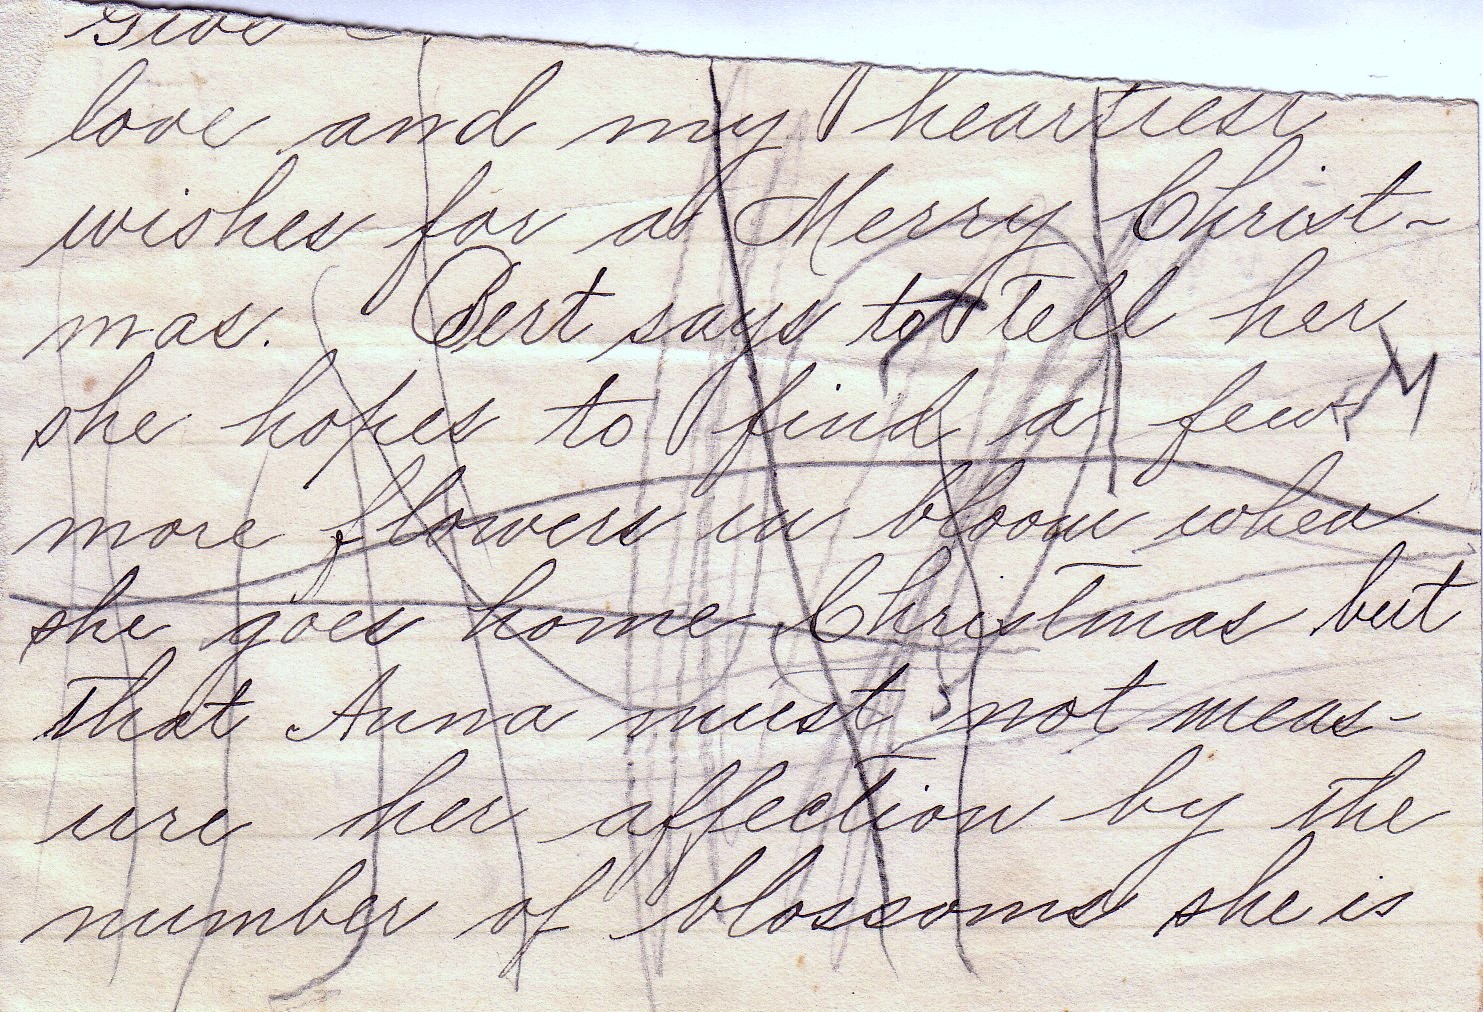 Give
love and my heartiest
wishes for a Merry Christ-
mas. Bert says to tell her
she hopes to find a few
more flowers in bloom when
she goes home Christmas but
that Anna must not meas-
ure her affection by the
number of blossoms she is